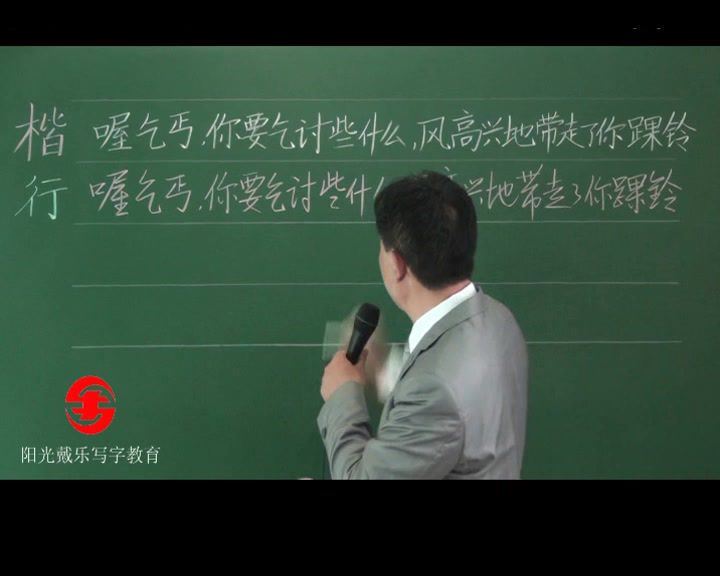 楷 喔乞丐,你要乞讨些什么,风高兴地带走了你踝铃
行 喔乞丐,你要乞讨些什 高兴地带走了你踝铃
阳光戴乐写字教育